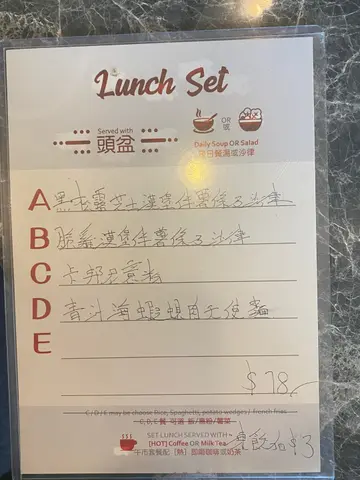 Lunch Set
Served with
頭盆
OR
或
Daily Soup OR Salad
每日餐湯或沙律
A 黑松露芝士漢堡伴薯條及沙律
B 脆雞漢堡伴薯條及沙律
C 卡邦尼意粉
D 青汁海蝦蜆肉天使麵
E
$78
C / D / E may be choose Rice, Spaghetti, potato wedges / french fries
C, D, E 餐 可選 飯/意粉/薯菜
SET LUNCH SERVED WITH
[HOT] Coffee OR Milk Tea
午市套餐配 [熱] 即磨咖啡或奶茶
凍飲加$3